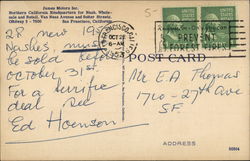 James Motors Inc.
Northern California Headquarters for Nash. Whole-
sale and Retail. Van Ness Avenue and Sutter Streets.
ORdway 3-7700 San Francisco, California
28 new 19
Nashes, must
be sold before
october 31st
For a terrific
deal see
Ed Hoenson
SAN FRANCISCO, CALIF.
OCT 28
6-AM
PREVENT
FOREST FIRES
POST CARD
Mr. E.A. Thomas
1710-27th Ave
S.F.
ADDRESS